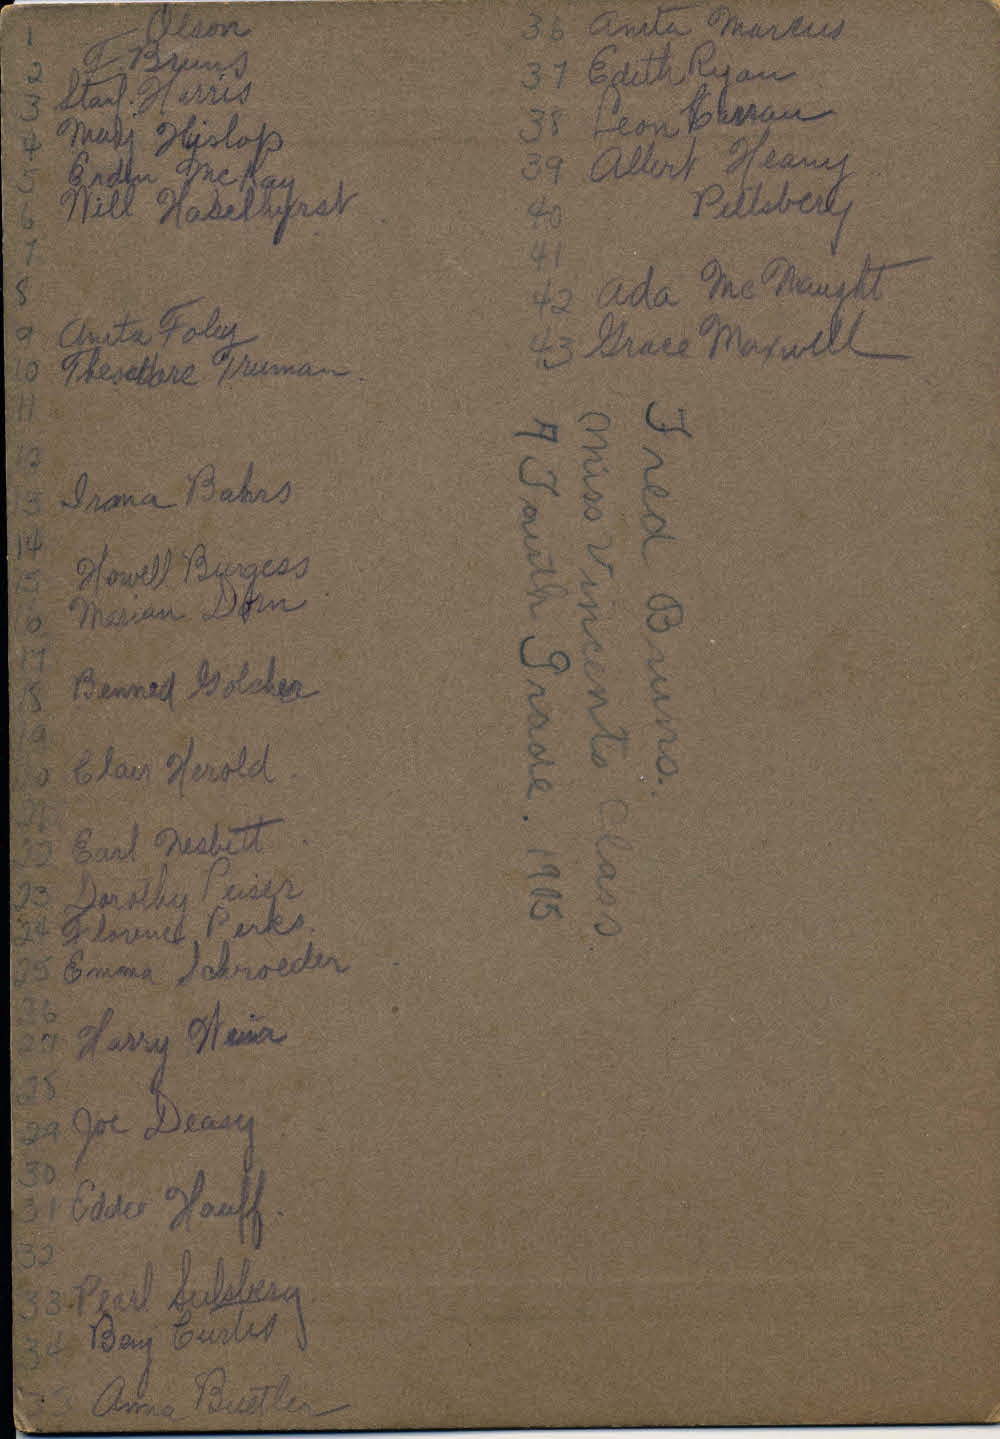 1 Olson
2 F. Bruns
3 Stanl. Harris
4 Marj Hislop
5 McKay
6 Will Haselhurst
7
8
9 Anita Foley
10 Theodore Truman
11
12
13 Irma Bahrs
14
15 Howell Burgess
16 Marian Dorn
17
18 Benned Golcher
19
20 Clair Herold
21
22 Earl Nesbett
23 Dorothy Peiser
24 Florence Perks.
25 Emma Schroeder
26
27 Harry
28
29 Joe Deasy
30
31 Eddie Hauff.
32
33 Pearl Sulsberg
34 Benj Curtis
35 Anna Buetler
36 Anita Marcus
37 Edith Ryan
38 Leon Curran
39 Albert Heany
40 Pittsbery
41
42 Ada McNaught
43 Grace Maxwell
Fred Bruns.
Miss Vincents Class
A Fourth Grade. 1905